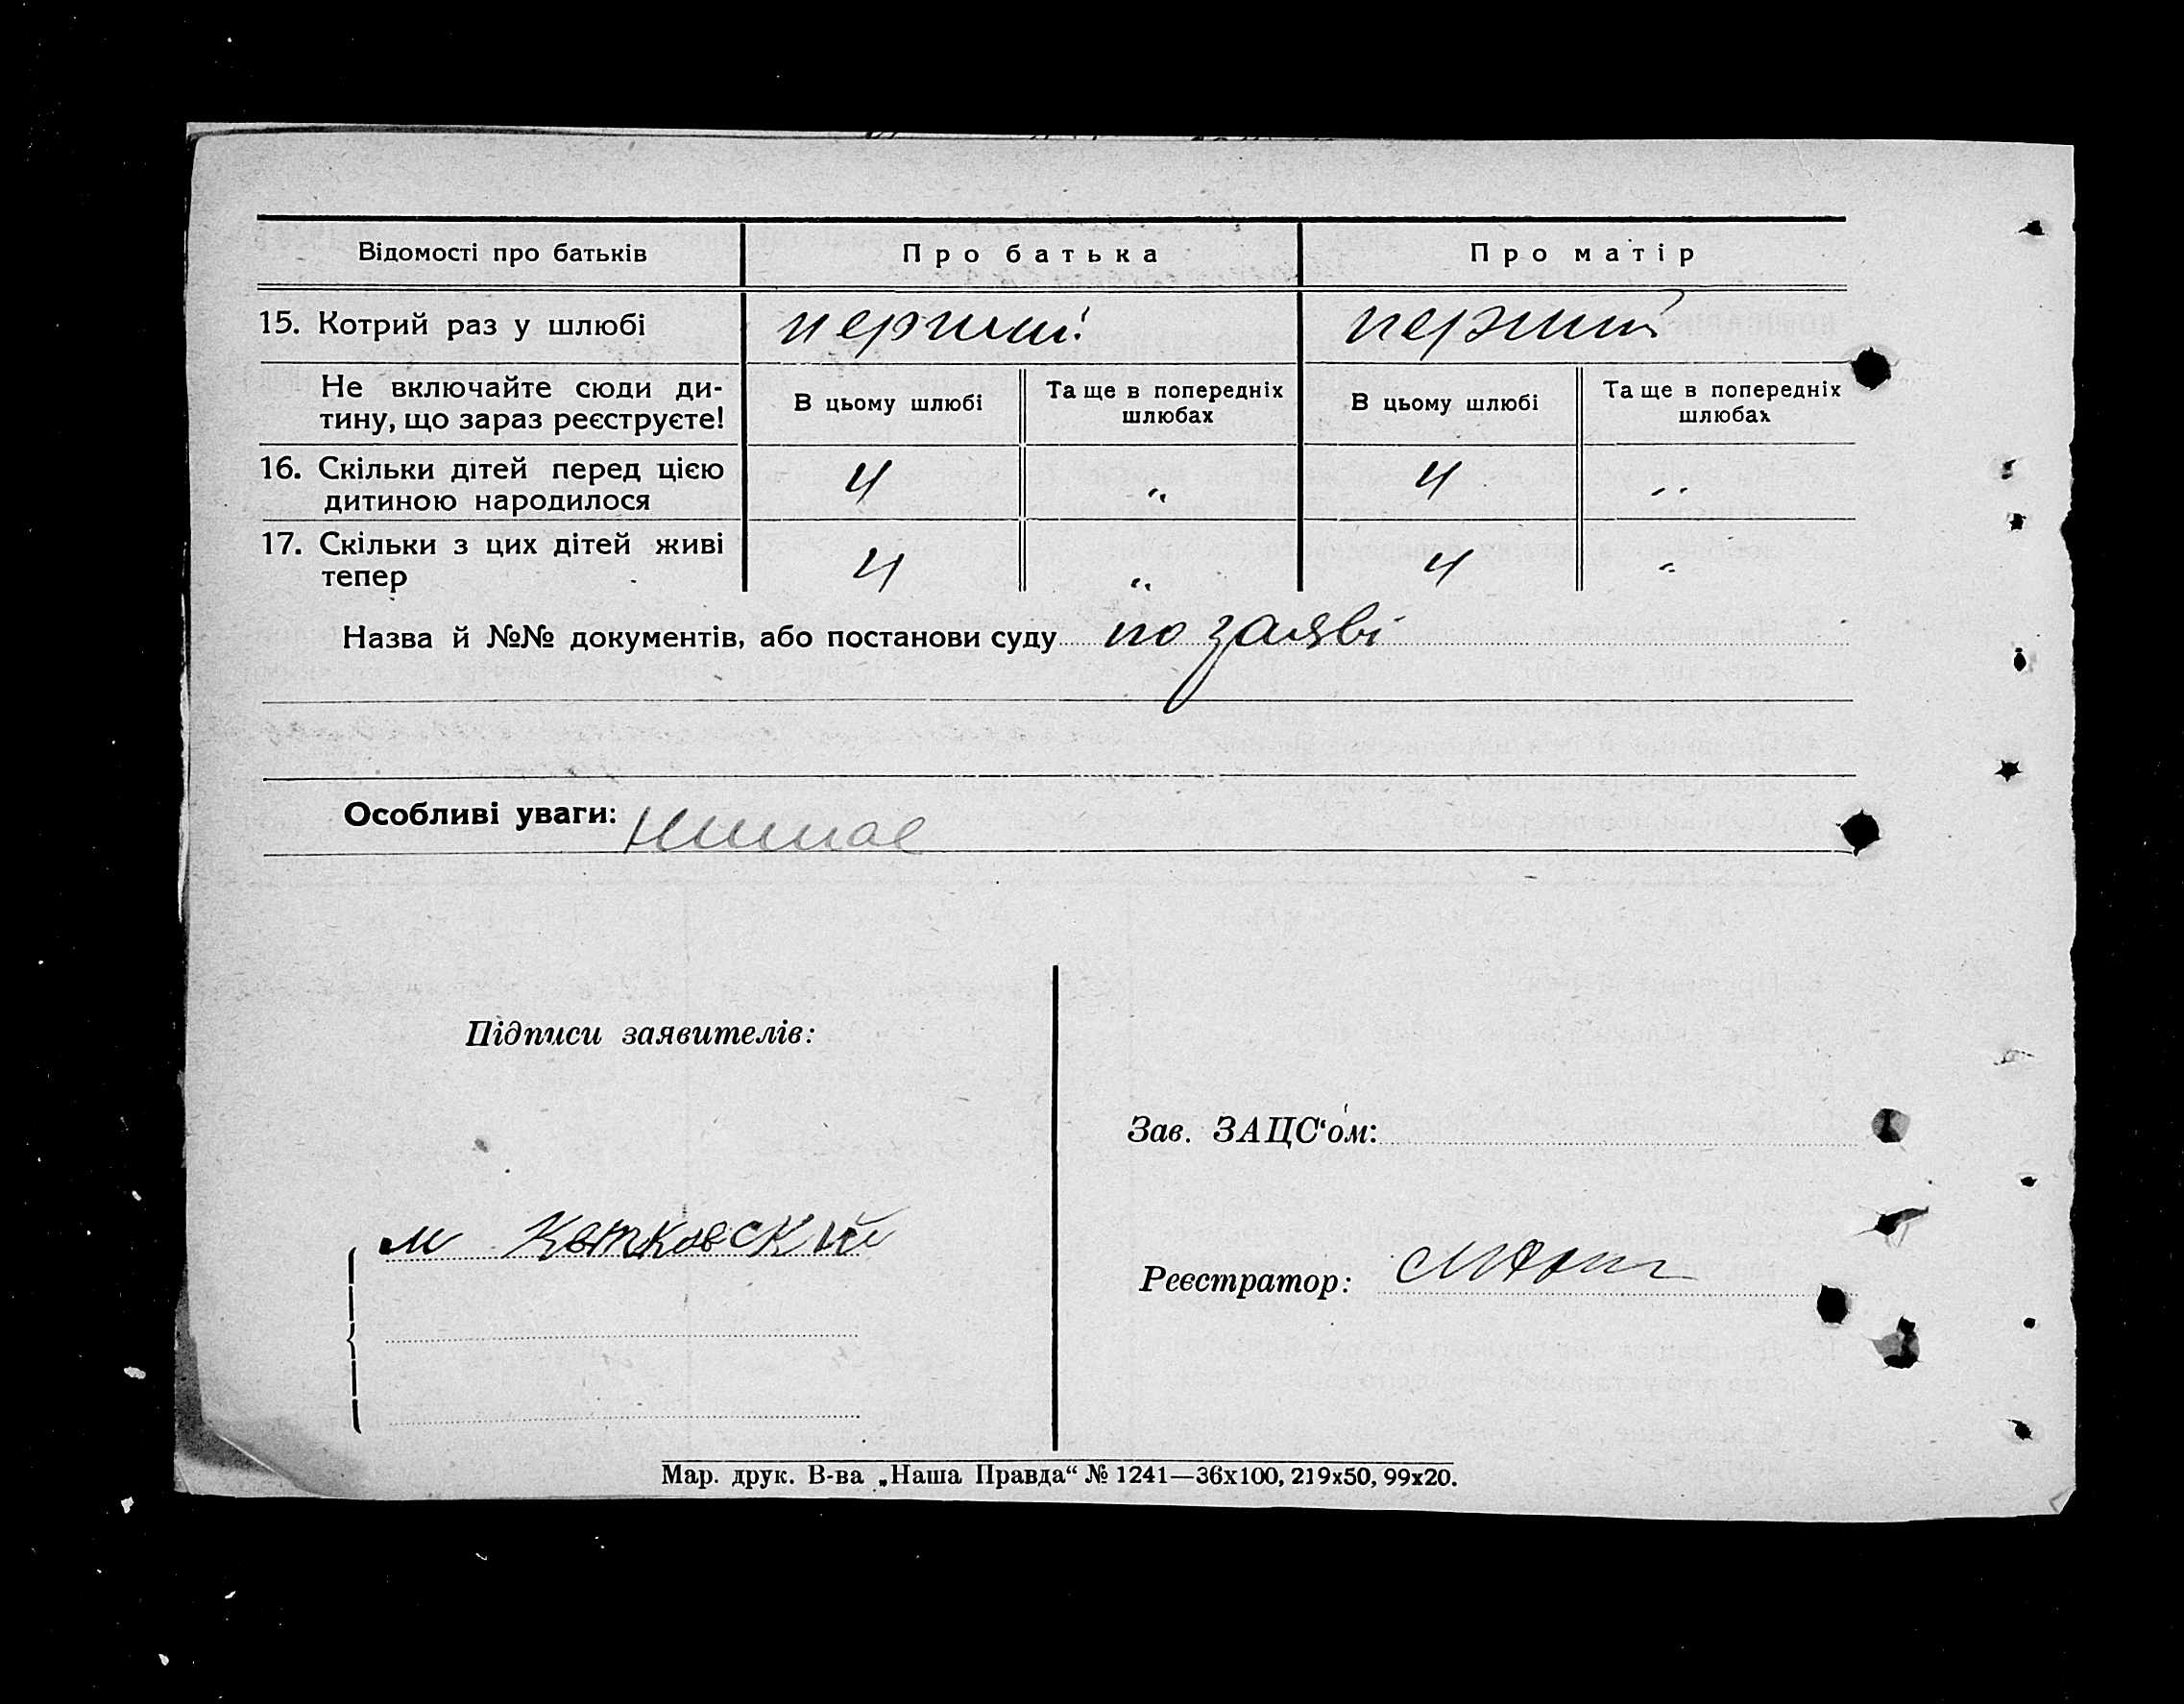 Відомості про батьків Про батька Про матір
15. Котрий раз у шлюбі перший перший
Не включайте сюди ди-
тину, що зараз реєструєте!
В цьому шлюбі
Та ще в попередніх
шлюбах
В цьому шлюбі
Та ще в попередніх
шлюбах
16. Скільки дітей перед цією
дитиною народилося
4 „ 4 „
17. Скільки з цих дітей живі
тепер
4 „ 4 „
Назва й №№ документів, або постанови суду по заяві
Особливі уваги: Немає
Підписи заявителів:
Зав. ЗАЦС‘ом:
м
Реєстратор:
Мар. друк. В-ва „Наша Правда“ № 1241—36х100, 219х50, 99х20.